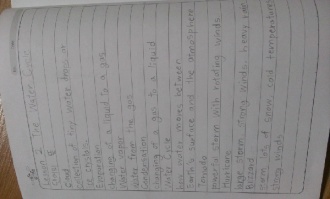 Lesson 2 The Water Cycle
Cloud
collection of tiny water drops or
ice crystals
Evaporation
changing of a liquid to a gas
Water vapor
water from the gas
Condensation
changing of a gas to a liquid
Water Cycle
how water moves between
Earth's surface and the atmosphere
Tornado
powerful storm with rotating winds
Hurricane
large storm strong winds, heavy rain
Blizzard
storm lots of snow, cold temperatures
strong winds